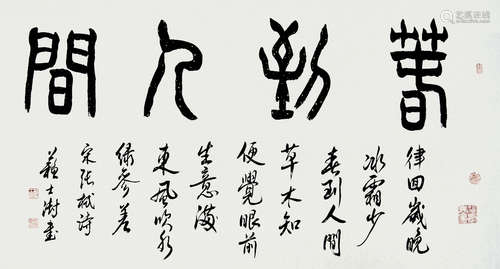 春到人間
律回歲晚
冰霜少
春到人間
草木知
便覺眼前
生意滿
東風吹水
綠參差
宋張栻詩
蘇士澍書